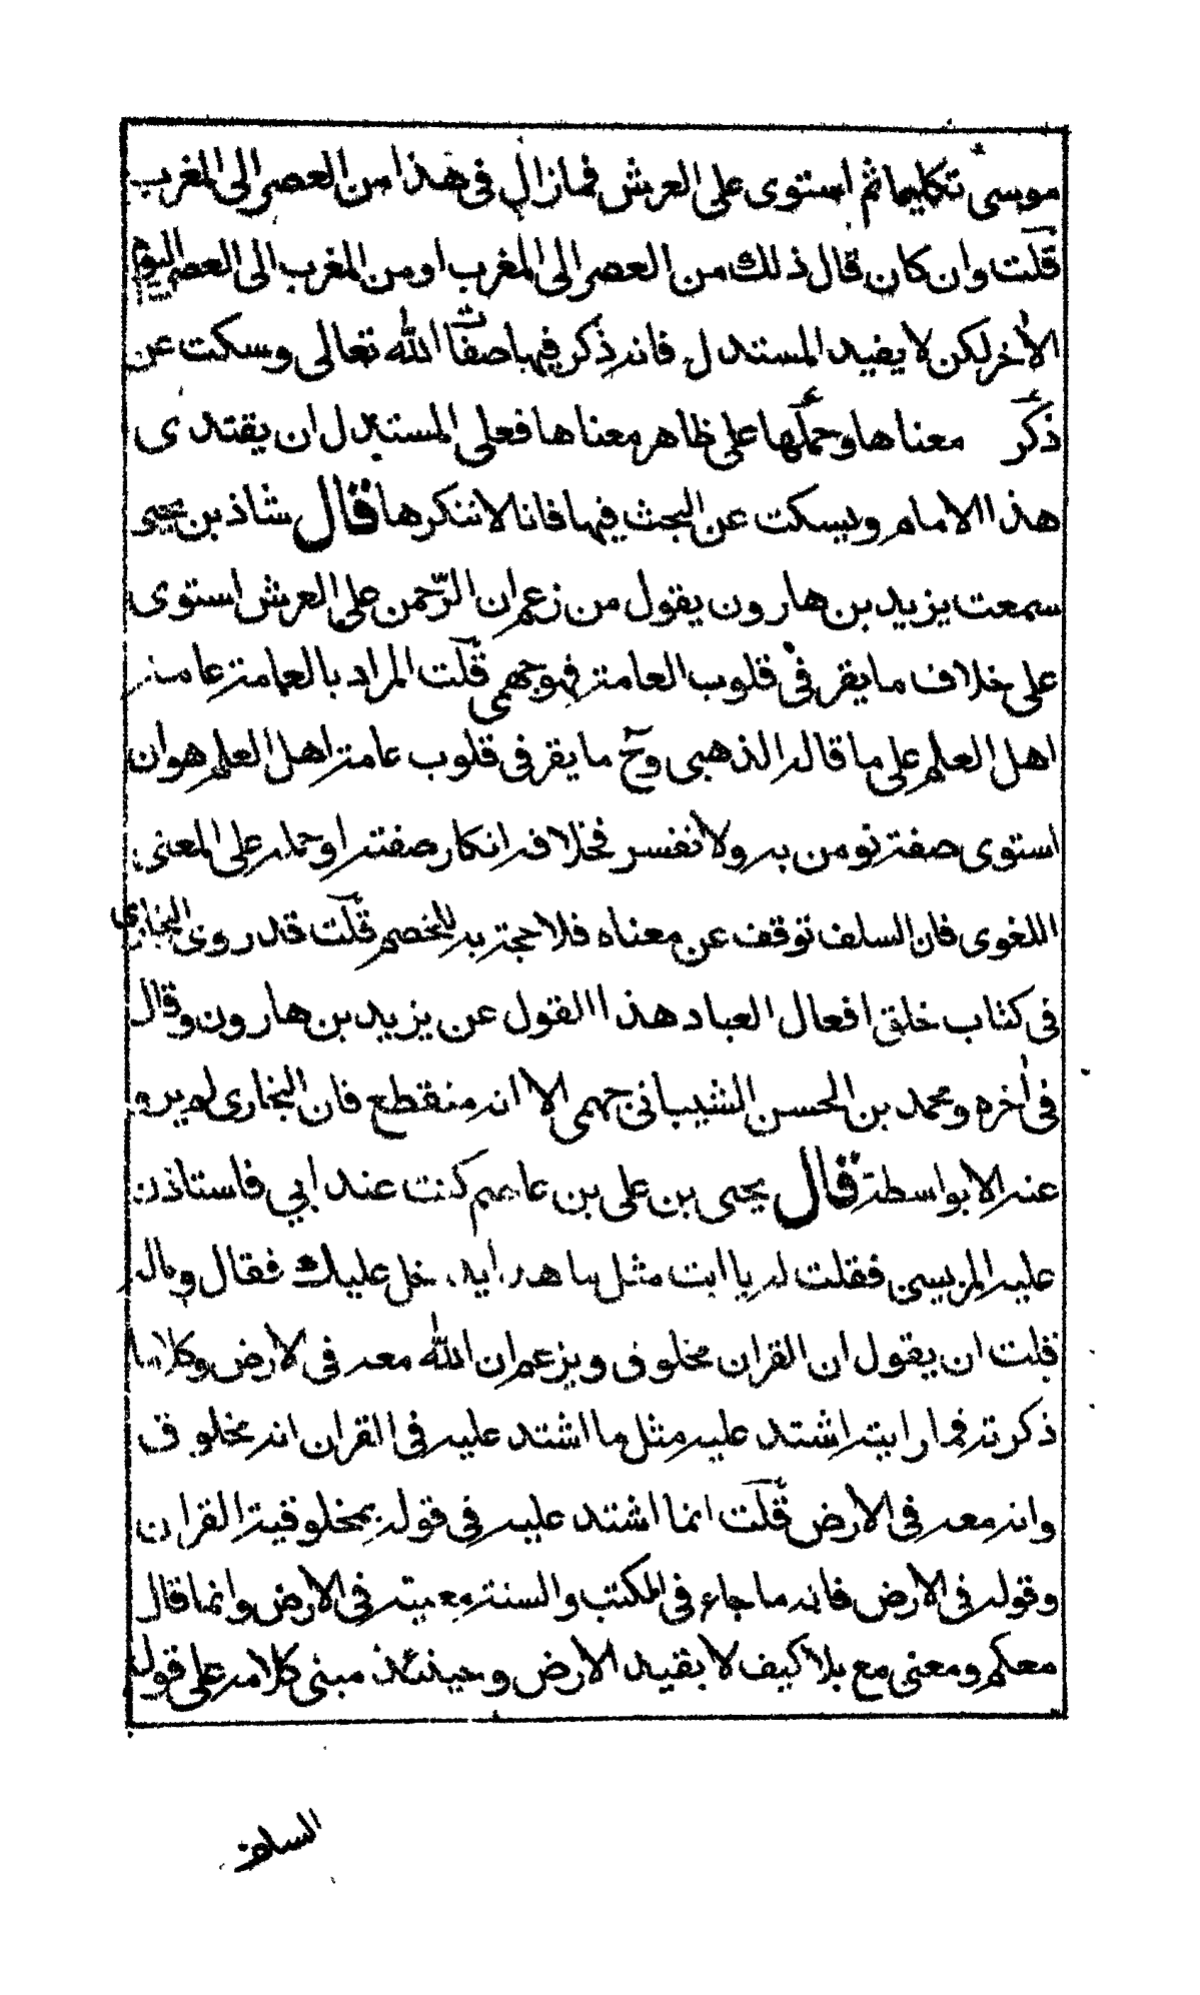 موسى تكليما ثم استوى على العرش فما زال فى هذا من العصر الى المغرب
قلت وان كان قال ذلك من العصر الى المغرب او من المغرب الى العصر اليوم
الاخر لكن لا يفيد المستدل فانه ذكر فيها صفات الله تعالى وسكت عن
ذكر معناها وحملها على ظاهر معناها فعلى المستدل ان يقتدى
هذا الامام ويسكت عن البحث فيها فانا لا ننكرها قال شاذ بن يحيى
سمعت يزيد بن هارون يقول من زعم ان الرّحمن على العرش استوى
على خلاف ما يقر فى قلوب العامة فهو جهمى قلت المراد بالعامة عامة
اهل العلم على ما قاله الذهبى وح ما يقر فى قلوب عامة اهل العلم هو ان
استوى صفة نومن به ولا نفسر فخلافه انكار صفته او حمله على المعنى
اللغوى فان السلف توقف عن معناه فلا حجة به للخصم قلت قد روى البخارى
فى كتاب خلق افعال العباد هذا القول عن يزيد بن هارون وقال
فى اخره ومحمد بن الحسن الشيبانى جهمى الا انه منقطع فان البخارى لم يرو
عنه الا بواسطة قال يحيى بن على بن عاصم كنت عند ابي فاستاذن
عليه المريسى فقلت له يا ابت مثل هذا يدخل عليك فقال وماله
قلت ان يقول ان القران مخلوق ويزعم ان الله معه فى الارض وكلاما
ذكرته فما رايته اشتد عليه مثل ما اشتد عليه فى القران انه مخلوق
وانه معه فى الارض قلت انما اشتد عليه فى قوله بمخلوقية القران
وقوله فى الارض فانه ما جاء فى الكتب والسنة معيته فى الارض وانما قال
معكم ومعنى مع بلا كيف لا بقيد الارض وحينئذ مبنى كلامه على قوله
السلف